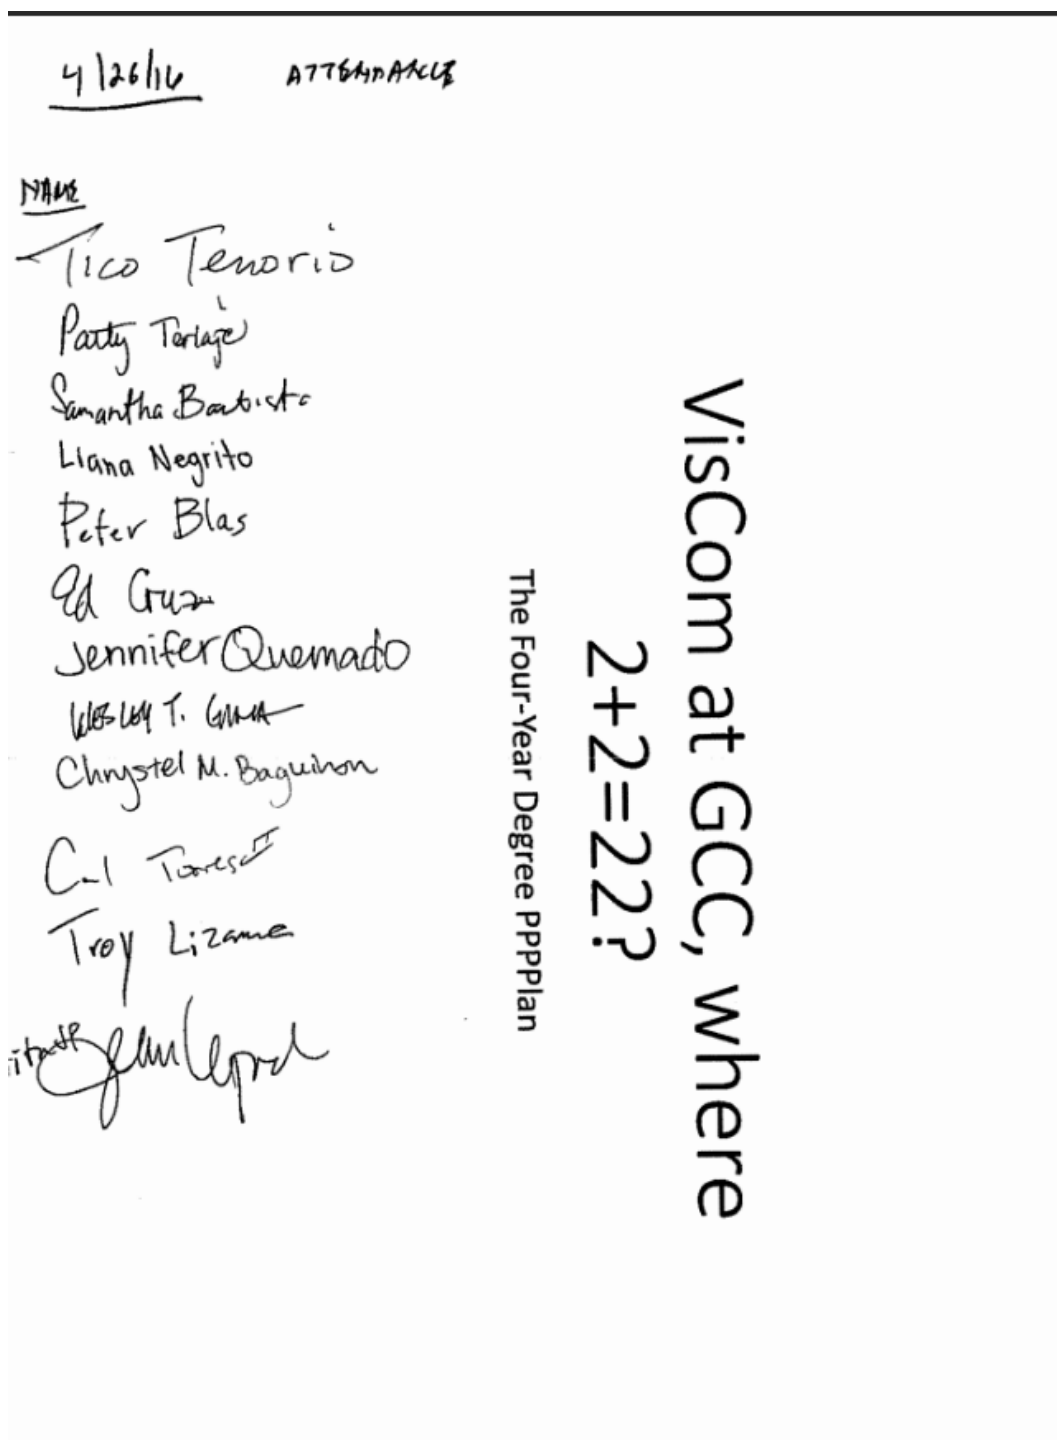 4/26/16 ATTENDANCE
NAME
Tico Tenorio
Patty Terlaje
Samantha Bautista
Liana Negrito
Peter Blas
Ed Cruz
Jennifer Quemado
WESLEY T. GIMA
Chrystel M. Baguinon
Cal Torres II
Troy Lizama
VisCom at GCC, where
2+2=22?
The Four-Year Degree PPPPlan